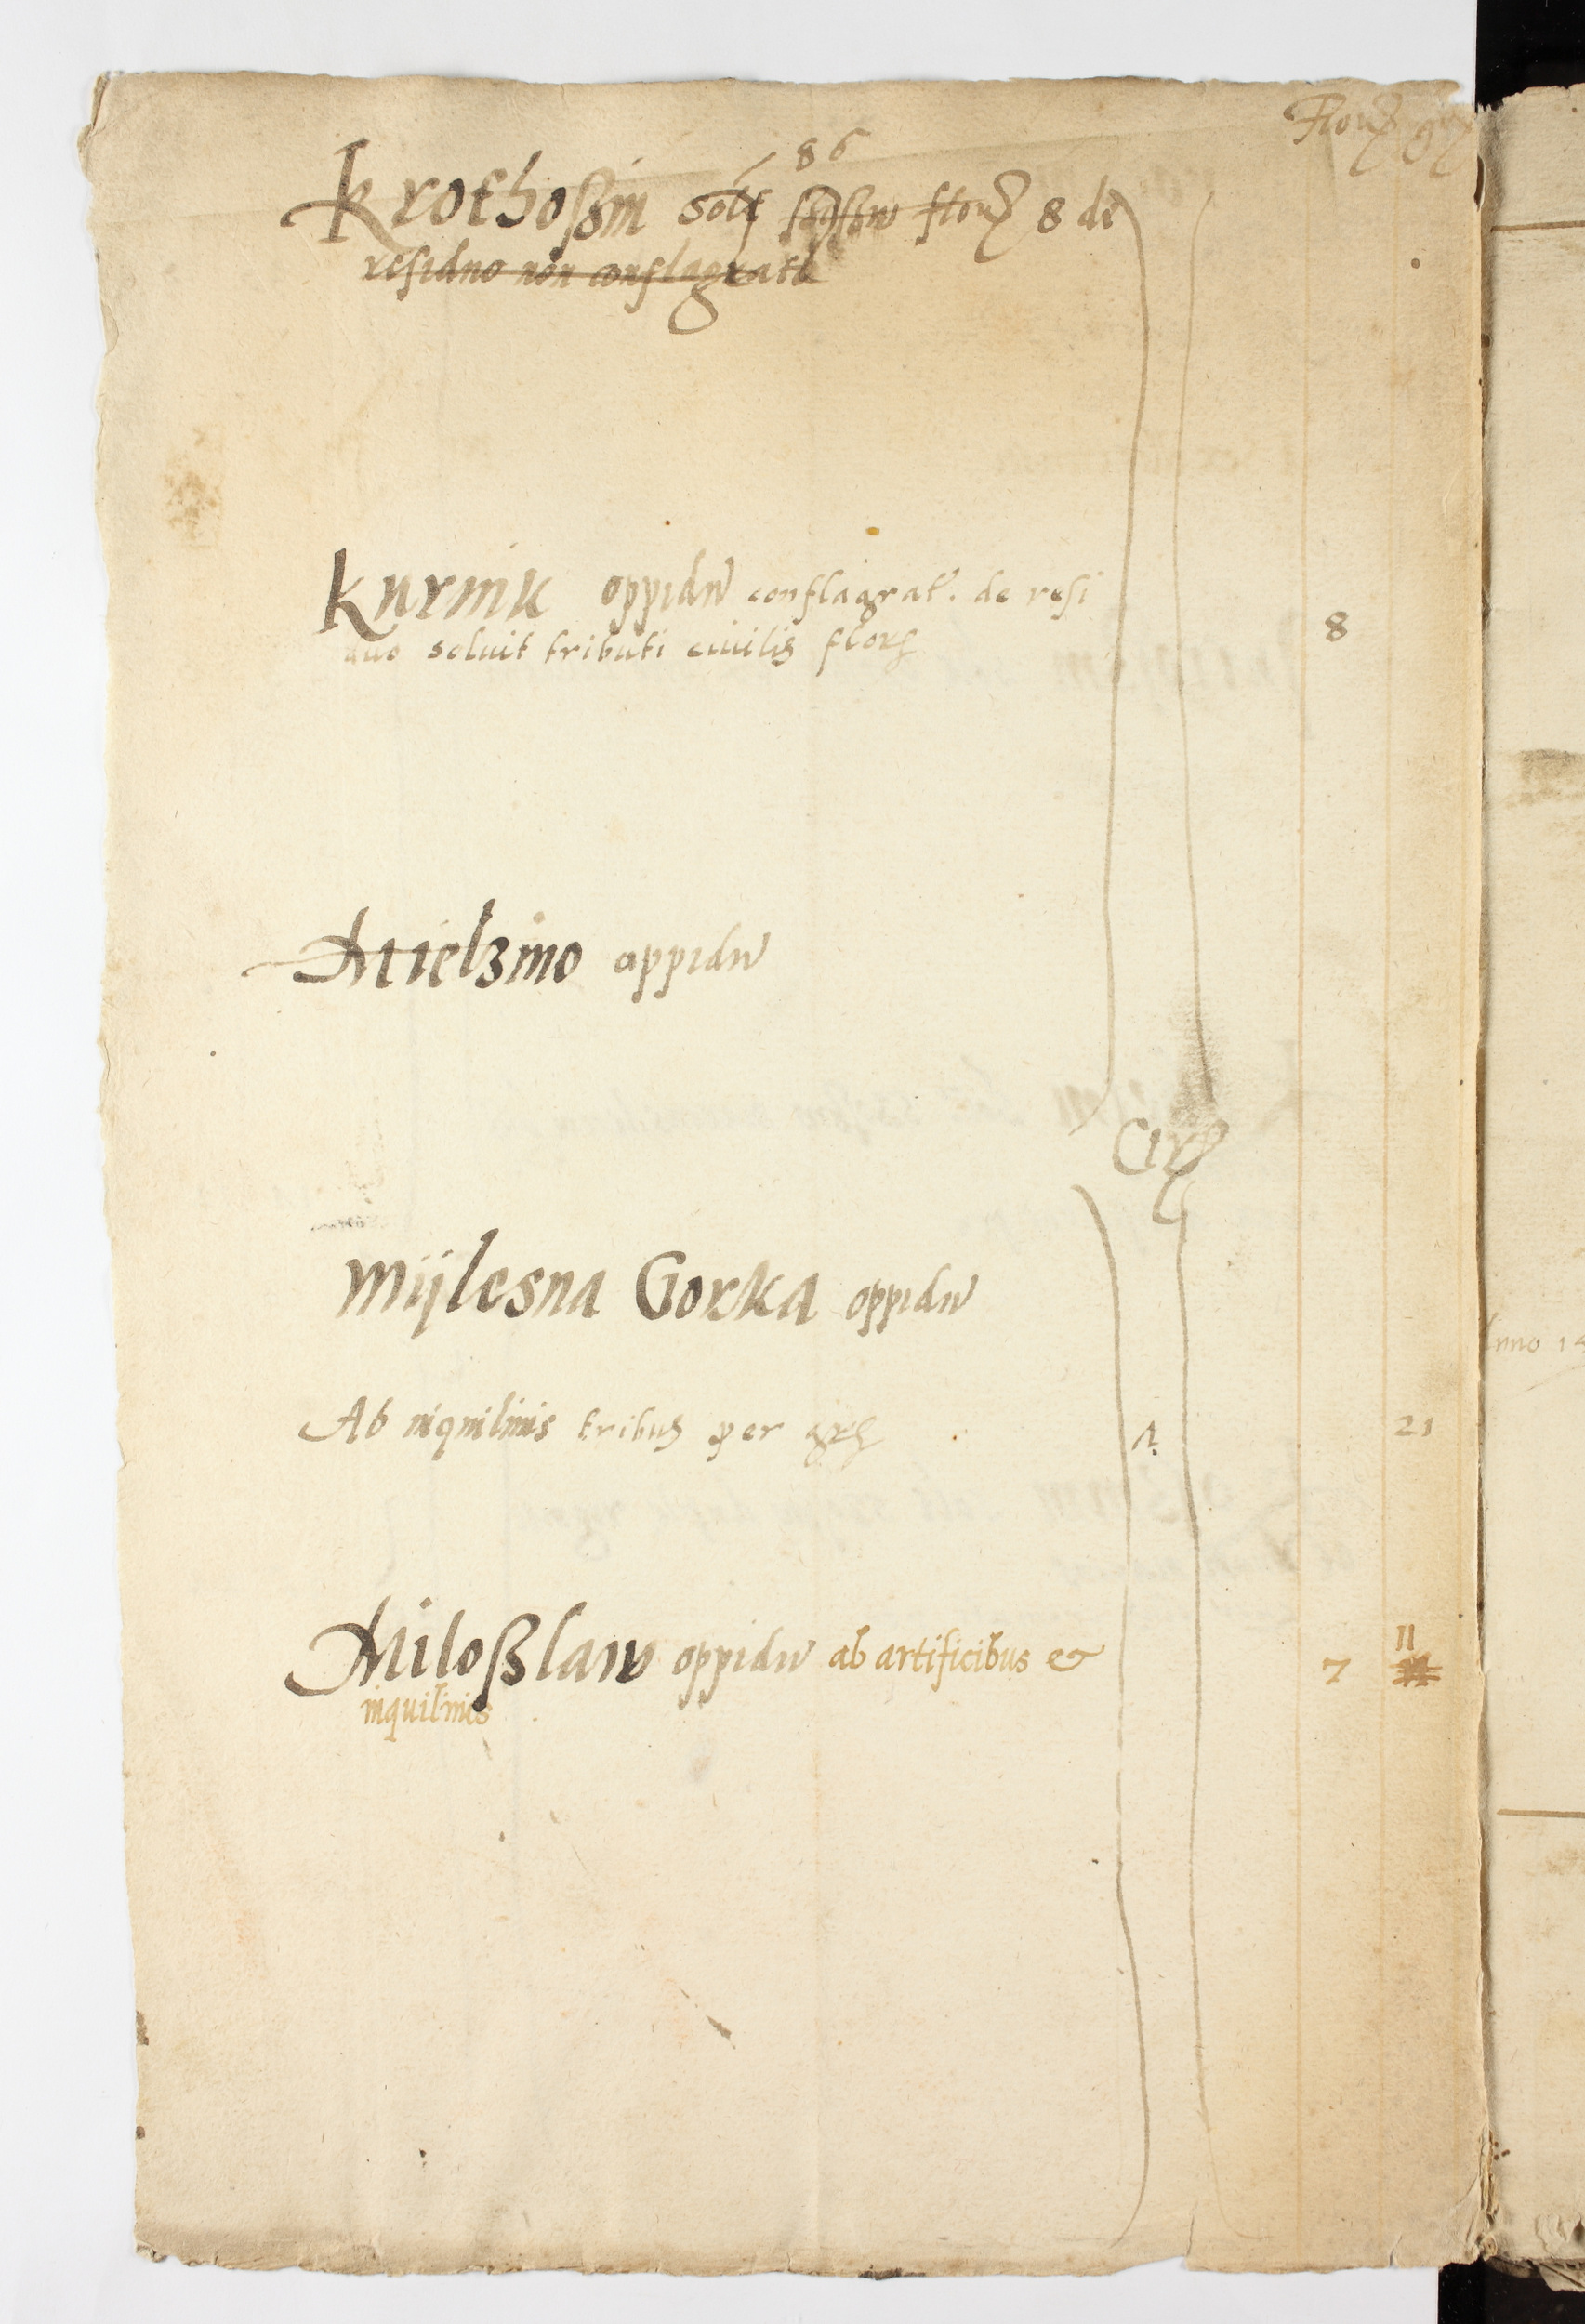 Flor gr
86
Krothoßin solt ſchoßw flor 8 de
residuo non conflagrate
Kurnik oppidū conflagrat. de resi
duo soluit tributi ciuilis flor 8
Mielzino oppidū
Cir
Mijlesna Gorka oppidū
Ab inquilinis tribus per gr 1 21
Miloßlaw oppidū ab artificibus et 7 11
inquilinis